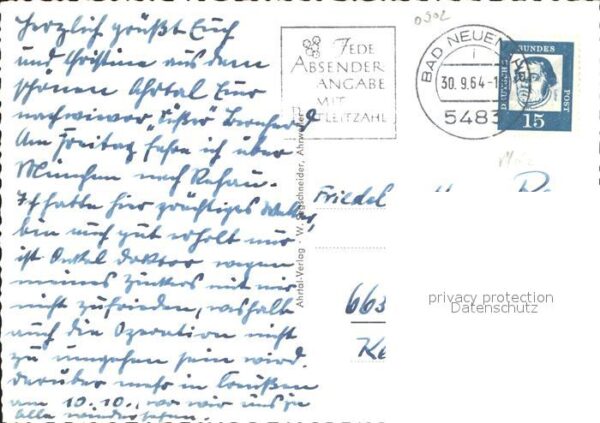 Herzlich grüßt Euch
und Christine aus dem
schönen Ahrtal Euer
Bernhard
Am Freitag fahre ich über
München nach Rehau.
Ich hatte hier prächtiges Wetter,
bin auch gut erholt nur
ist Onkel Doktor wegen
meines Zuckers mit mir
nicht zufrieden, weshalb
auch die Operation nicht
zu umgehen sein wird.
darüber mehr in Creußen
am 10.10., wo wir uns ja
alle wiedersehen.
JEDE
ABSENDER
ANGABE
MIT
POSTLEITZAHL
BAD NEUENAHR
30.9.64-1
5483
DEUTSCHE BUNDESPOST
15
0502
Ahrtal-Verlag · W. Segschneider, Ahrweiler
Friedel
663
privacy protection
Datenschutz